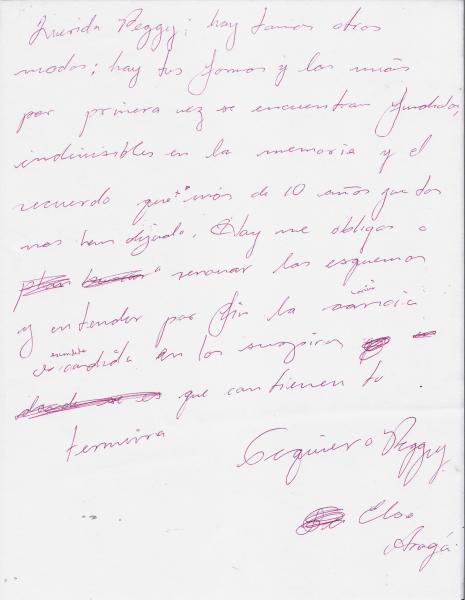 Querida Peggy; hay tamos otros
modos; hay tus formas y las mías
por primera vez se encuentran fundidas,
indivisibles en la memoria y el
recuerdo que más de 10 años gastados
nos han dejado. Hoy me obligas a
renovar los esquemas
y entender por fin la
escondida en los suspiros
que contienen tu
ternura
Te quiero Peggy.
Elsa
Aragó